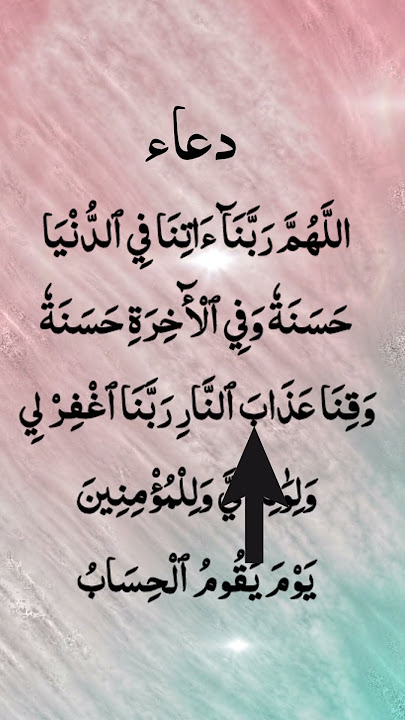 دعاء
اللَّهُمَّ رَبَّنَآ ءَاتِنَا فِي ٱلدُّنْيَا
حَسَنَةً وَفِي ٱلْأَٓخِرَةِ حَسَنَةً
وَقِنَا عَذَابَ ٱلنَّارِ رَبَّنَا ٱغْفِرْ لِي
وَلِلْمُؤْمِنِينَ
يَوْمَ يَقُومُ ٱلْحِسَابُ